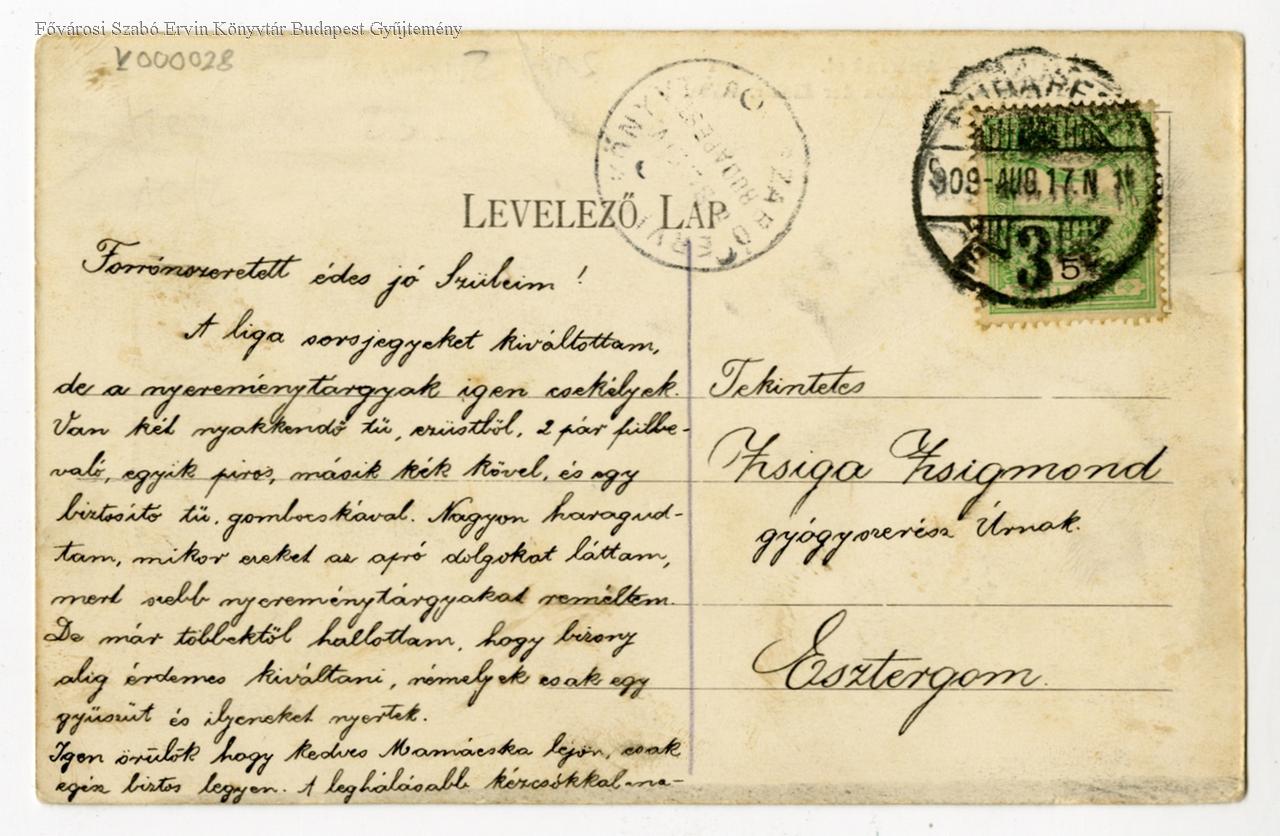 Fővárosi Szabó Ervin Könyvtár Budapest Gyűjtemény
V000028
LEVELEZŐ LAP
SZABÓ ERVIN KÖNYVTÁR
BUDAPEST
BUDAPEST
909-AUG.17.N 11
3
5
Forrónszeretett édes jó Szüleim!
A liga sorsjegyeket kiváltottam,
de a nyereménytárgyak igen csekélyek.
Van két nyakkendő tű, ezüstből, 2 pár fülbe-
való, egyik piros, másik kék kővel, és egy
biztosító tű, gombocskával. Nagyon haragud-
tam, mikor ezeket az apró dolgokat láttam,
mert szebb nyereménytárgyakat reméltem.
De már többektől hallottam, hogy bizony
alig érdemes kiváltani, némelyek csak egy
gyüszüt és ilyeneket nyertek.
Igen örülök hogy kedves Mamácska lejön, csak
egész biztos legyen. A leghálásabb kézcsókkal ma-
Tekintetes
Zsiga Zsigmond
gyógyszerész Úrnak.
Esztergom.